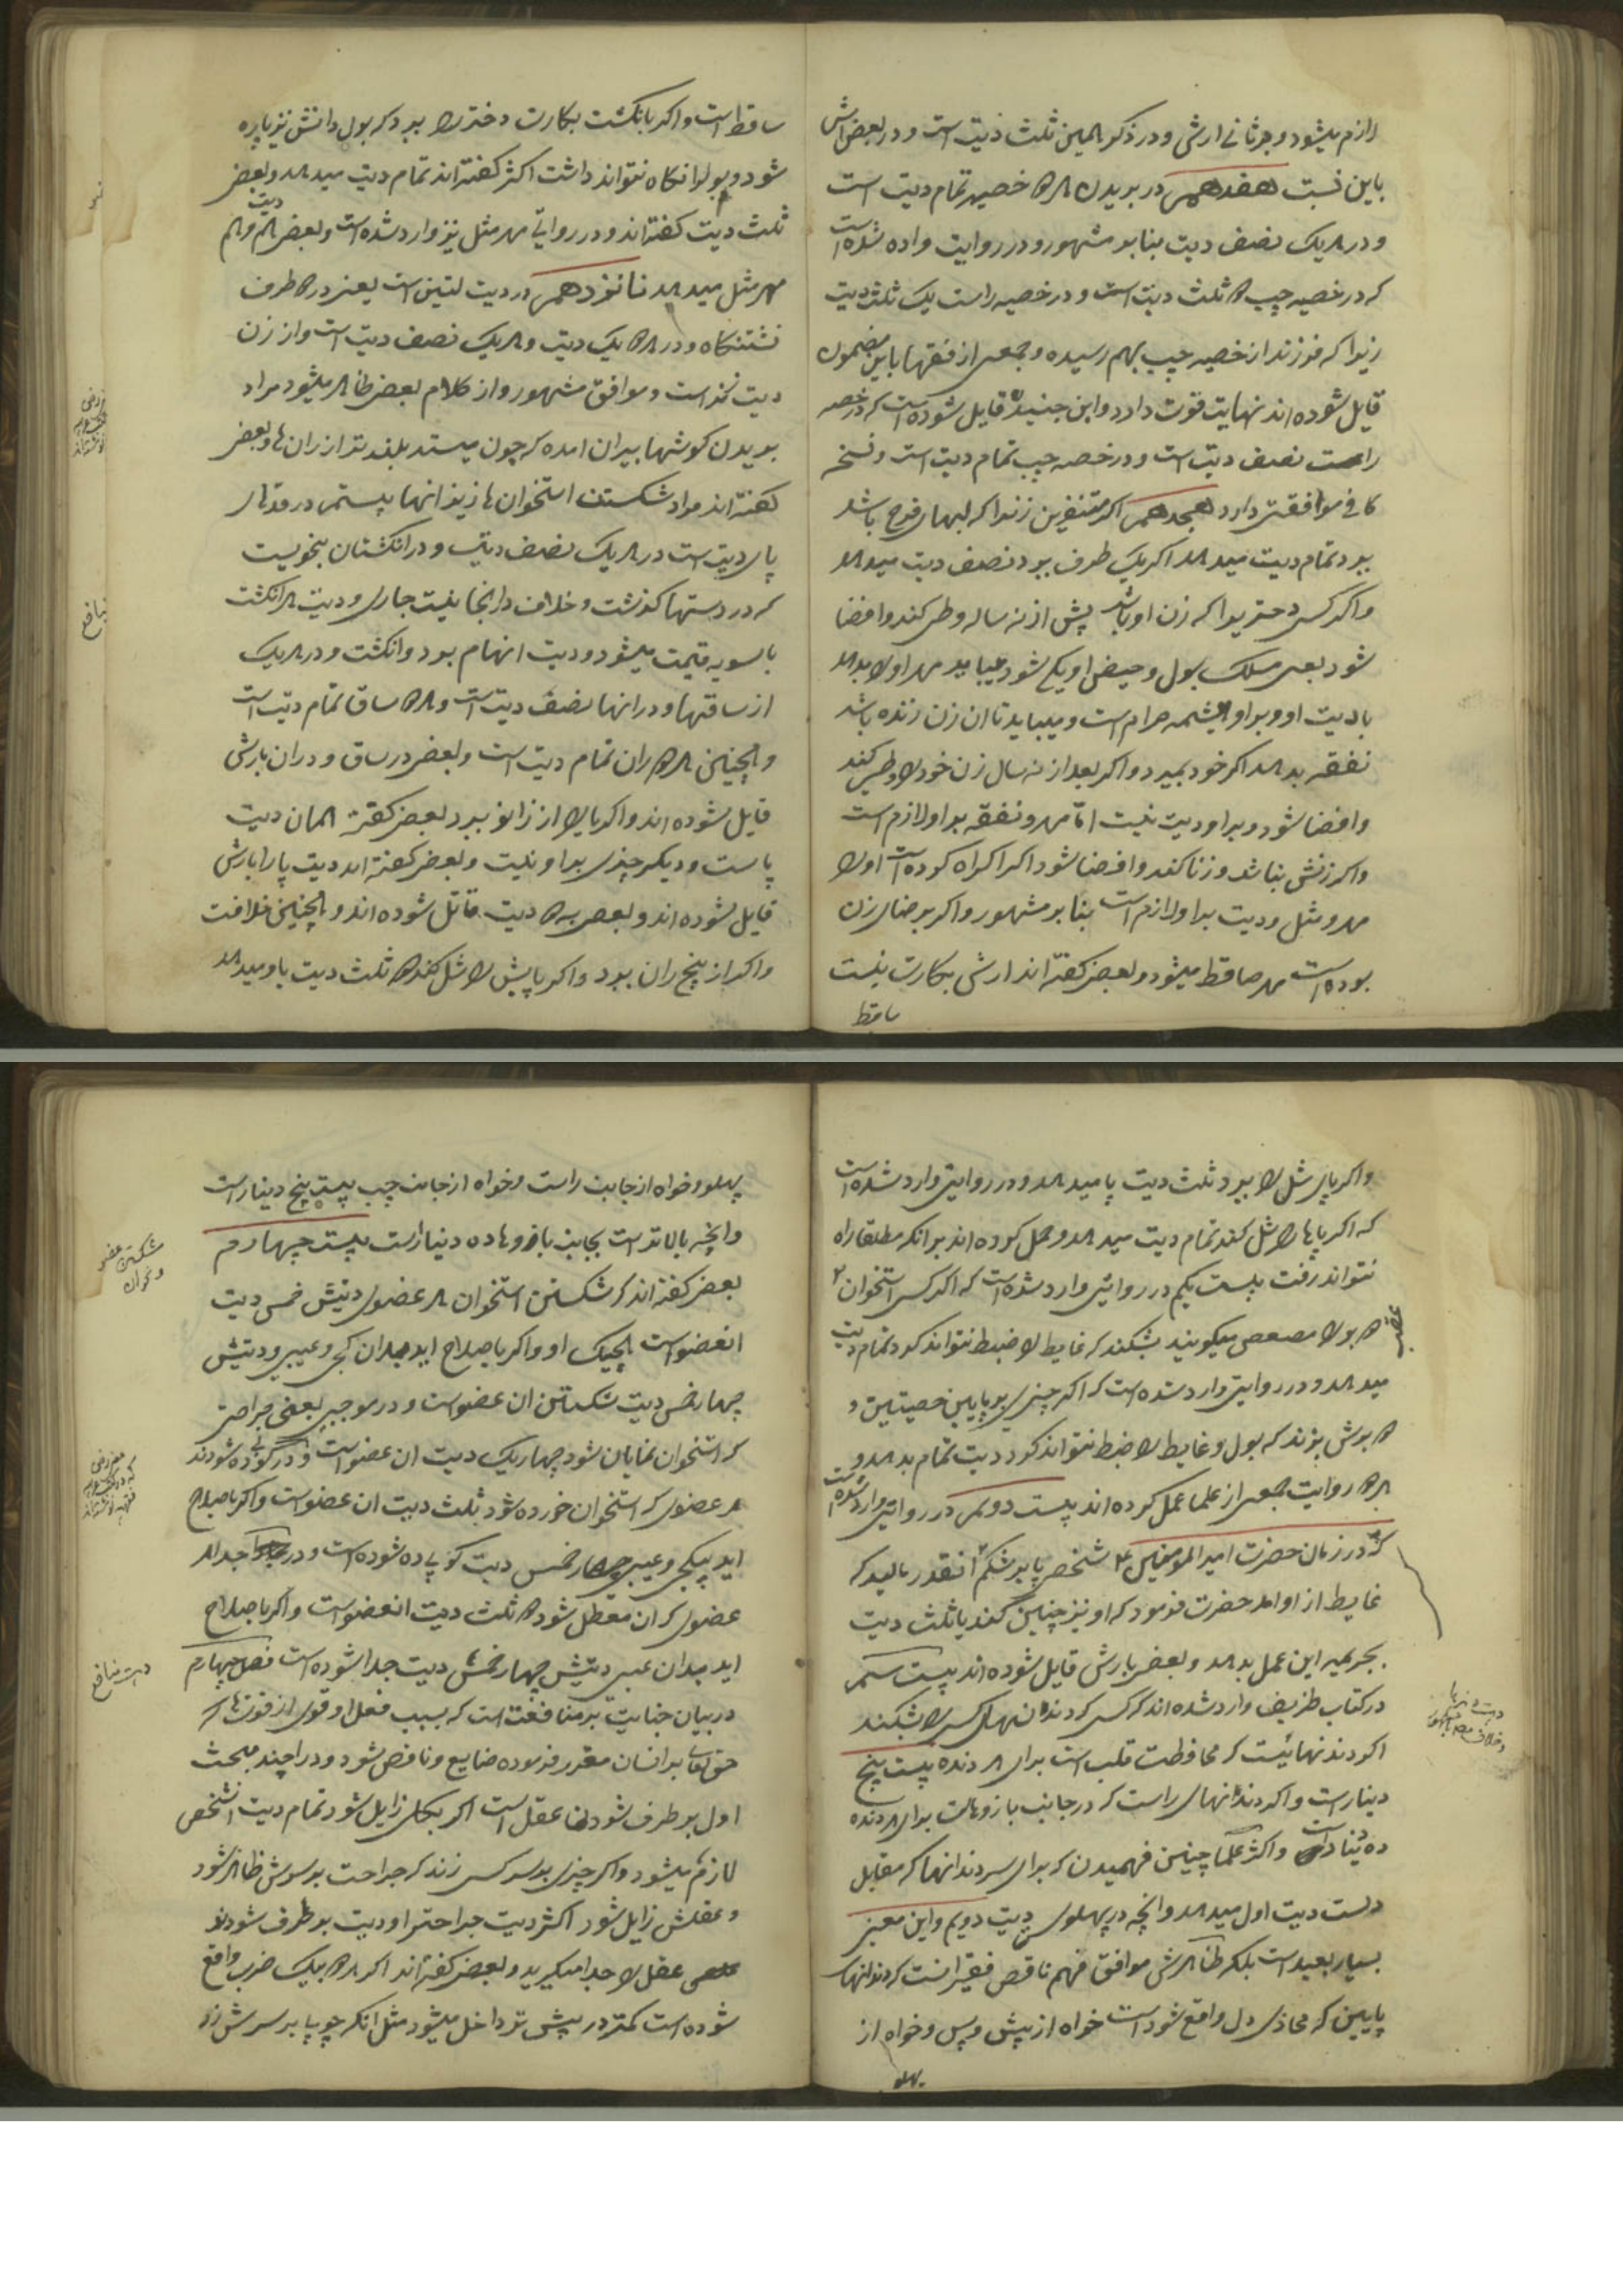 لازم میشود و جزثانی ارش و در ذکر المین ثلث دیت است و در بعض اش
باین نسبت هفدهم در بریدن هر دو خصیه تمام دیت است
و در هر یک نصف دیت بنا بر مشهور و در روایت وارده شده است
که در خصیه چپ دو ثلث دیت است و در خصیه راست یک ثلث دیت
زیرا که فرزند از خصیه چپ بهم رسیده و جمعی از فقها باین مضمون
قایل شوده اند نهایت قوت دارد و ابن جنید قایل شوده است که در خصیه
راست نصف دیت است و در خصیه چپ تمام دیت است و نسخه
کافی موافقتی دارد هجدهم اگر شفرین زنرا که لبهای فرج باشد
ببرد تمام دیت میدهد اگر یک طرف ببرد نصف دیت میدهد
و اگر کسی دختریرا که زن او باشد پیش از نه ساله وطی کند و افضا
شود یعنی مسلک بول و حیض او یکی شود میباید مهر او را بدهد
با دیت او و بر او همیشه حرام است و میباید تا ان زن زنده باشد
نفقه بدهد اگر خود بمیرد و اگر بعد از نه سال زن خود را وطی کند
و افضا شود و بر او دیت نیست اما مهر و نفقه بر او لازم است
و اگر زنش نباشد و زنا کند و افضا شود اگر اکراه کرده است او را
مهر و مثل و دیت بر او لازم است بنا بر مشهور و اگر برضای زن
بوده است مهر صاقط میشود و بعضی گفته اند ارش بکارت نیست
ساقط
ساقط است و اگر بانگشت بکارت دختر را ببرد که بول دانش نیز پاره
شود و بول را نگاه نتواند داشت اکثر گفته اند تمام دیت میدهد و بعضی
ثلث دیت گفته اند و در روایتی مهر مثل نیز وارد شده است و بعض هم دیت و هم
مهر مثل میدهد نانوزدهم در دیت لتین است یعنی دو طرف
نشتنگاه و در هر دو یک دیت و هر یک نصف دیت است و از زن
دیت زنست و موافق مشهور و از کلام بعض ظاهر میشود مراد
بریدن گوشتها بیران امده که چون میستد بلندتر از ران ها و بعض
گفته اند مراد شکستن استخوان ها زیر انها بیستم در قدمهای
پای دیت است در هر یک نصف دیت و در انگشتان بنحویست
که در دستها گذشت و خلاف در اینجا نیست جاری و دیت هر انگشت
بالسویه قیمت میشود و دیت ابهام بود و انگشت و در هر یک
از ساقها و در رانها نصف دیت است و هر دو ساق تمام دیت است
و همچنین هر دو ران تمام دیت است و بعض در ساق و در ران بارش
قایل شوده اند و اگر پا را از زانو ببرد بعض گفته همان دیت
پا ست و دیگر چیزی بر او نیست و بعض گفته اند دیت پا را با ارش
قایل شوده اند و بعض به دو دیت قائل شوده اند و همچنین خلافت
و اگر از بیخ ران ببرد و اگر پایش را شل کند دو ثلث دیت پا و میدهد
و اگر پای شل را ببرد ثلث دیت پا میدهد و در روایتی وارد شده است
که اگر پا ها را شل کند تمام دیت میدهد و حمل کرده اند بر انکه مطلقا راه
نتواند رفت بیست یکم در روایتی وارد شده است که اگر کسی استخوان
دو بر را عصعص میگویند بشکند که غایط را ضبط نتواند کرد تمام دیت
میدهد و در روایتی وارد شده است که اگر چیزی بر پایین خصیتین و
دو برش بزند که بول و غایط را ضبط نتواند کرد دیت تمام بدهد و
هر دو روایت جمعی از علما عمل کرده اند بیست دویم در روایتی وارد شده است
که در زمان حضرت امیر المومنین ع شخصی پا بر شکم انقدر مالید که
غایط از او امد حضرت فرمود که او نیز چنین کند یا ثلث دیت
بجریمه این عمل بدهد و بعض بارش قایل شوده اند بیست سیم
در کتاب ظریف وارد شده اند که کسی که دندانهای کسی را بشکند
اگر دندنهائیست که محافظت قلب است برای هر دنده بیست پنج
دینار است و اگر دندانهای راست که در جانب بازوهاست برای هر دنده
ده دینار است و اکثر علما چنین فهمیدن که برای سر دندانها که مقابل
دلست دیت اول میدهد و انچه در پهلوی دیت دویم و این معنی
بسیار بعید است بلکه ظاهرش موافق فهم ناقص فقیر انست که دندانهای
پایین که محاذی دل واقع شود است خواه از پیش و پس و خواه از
پهلو
پهلو و خواه از جانب راست و خواه از جانب چپ بیست پنج دینار است
و انچه بالاتر است بجانب بازوها ده دینار است بیست چهارم
بعض گفته اند که شکستن استخوان هر عضوی دیتش خمس دیت
انعضو است او و اگر باصلاح اید بدان کجی و عیبی و دیتش
چهار خمس دیت شکستن ان عضو است و در موجب بعضی جراحتی
که استخوان نمایان شود چهار یک دیت ان عضو است و در کوبیده شودند
هر عضوی که استخوان خورده شود ثلث دیت ان عضو است و اگر باصلاح
اید بیکجی و عیبی چهار خمس دیت کوبیده شوده است و در جدا
عضوی که ان معطل شود دو ثلث دیت انعضو است و اگر باصلاح
اید بدان عیبی دیتش چهار خمس دیت جدا شوده است فصل چهارم
در بیان جنایت بر منافعت است که بسبب فعل او قوی از قوتها که
حق تعالی بر انسان مقرر فرموده ضایع و ناقص شود و در او چند مبحث
اول بر طرف شودن عقل است اگر بکلی زایل شود تمام دیت انشخص
لازم میشود و اگر چیزی بر سر کسی زند که جراحت بر سرش ظاهر شود
و عقلش زایل شود اکثر دیت جراحت را و دیت بر طرف شودن
عقل را جدا میگیرند و بعض گفته اند اگر هر دو بیک ضرب واقع
شوده است کمتر در بیش تر داخل میشود مثل انکه چوب پا بر سرش زد
شکستن عضو